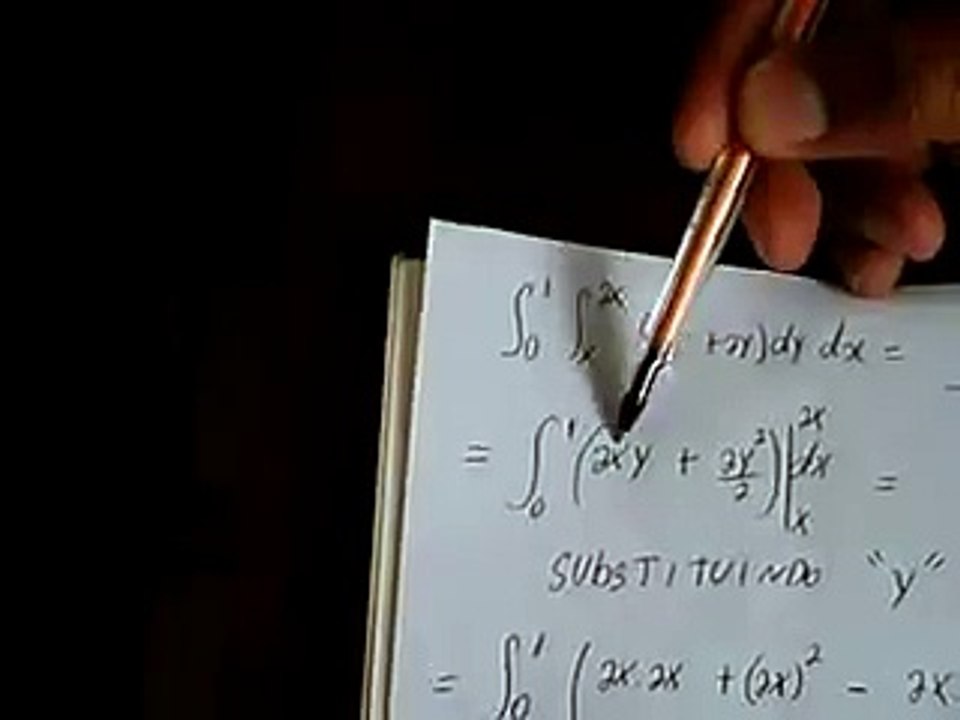 ∫₀¹ ∫ₓ²ˣ +2y)dy dx =
= ∫₀¹ (2xy + 2y²/2)|ₓ²ˣ dx =
SUBSTITUINDO "y"
= ∫₀¹ (2x.2x + (2x)² - 2x.